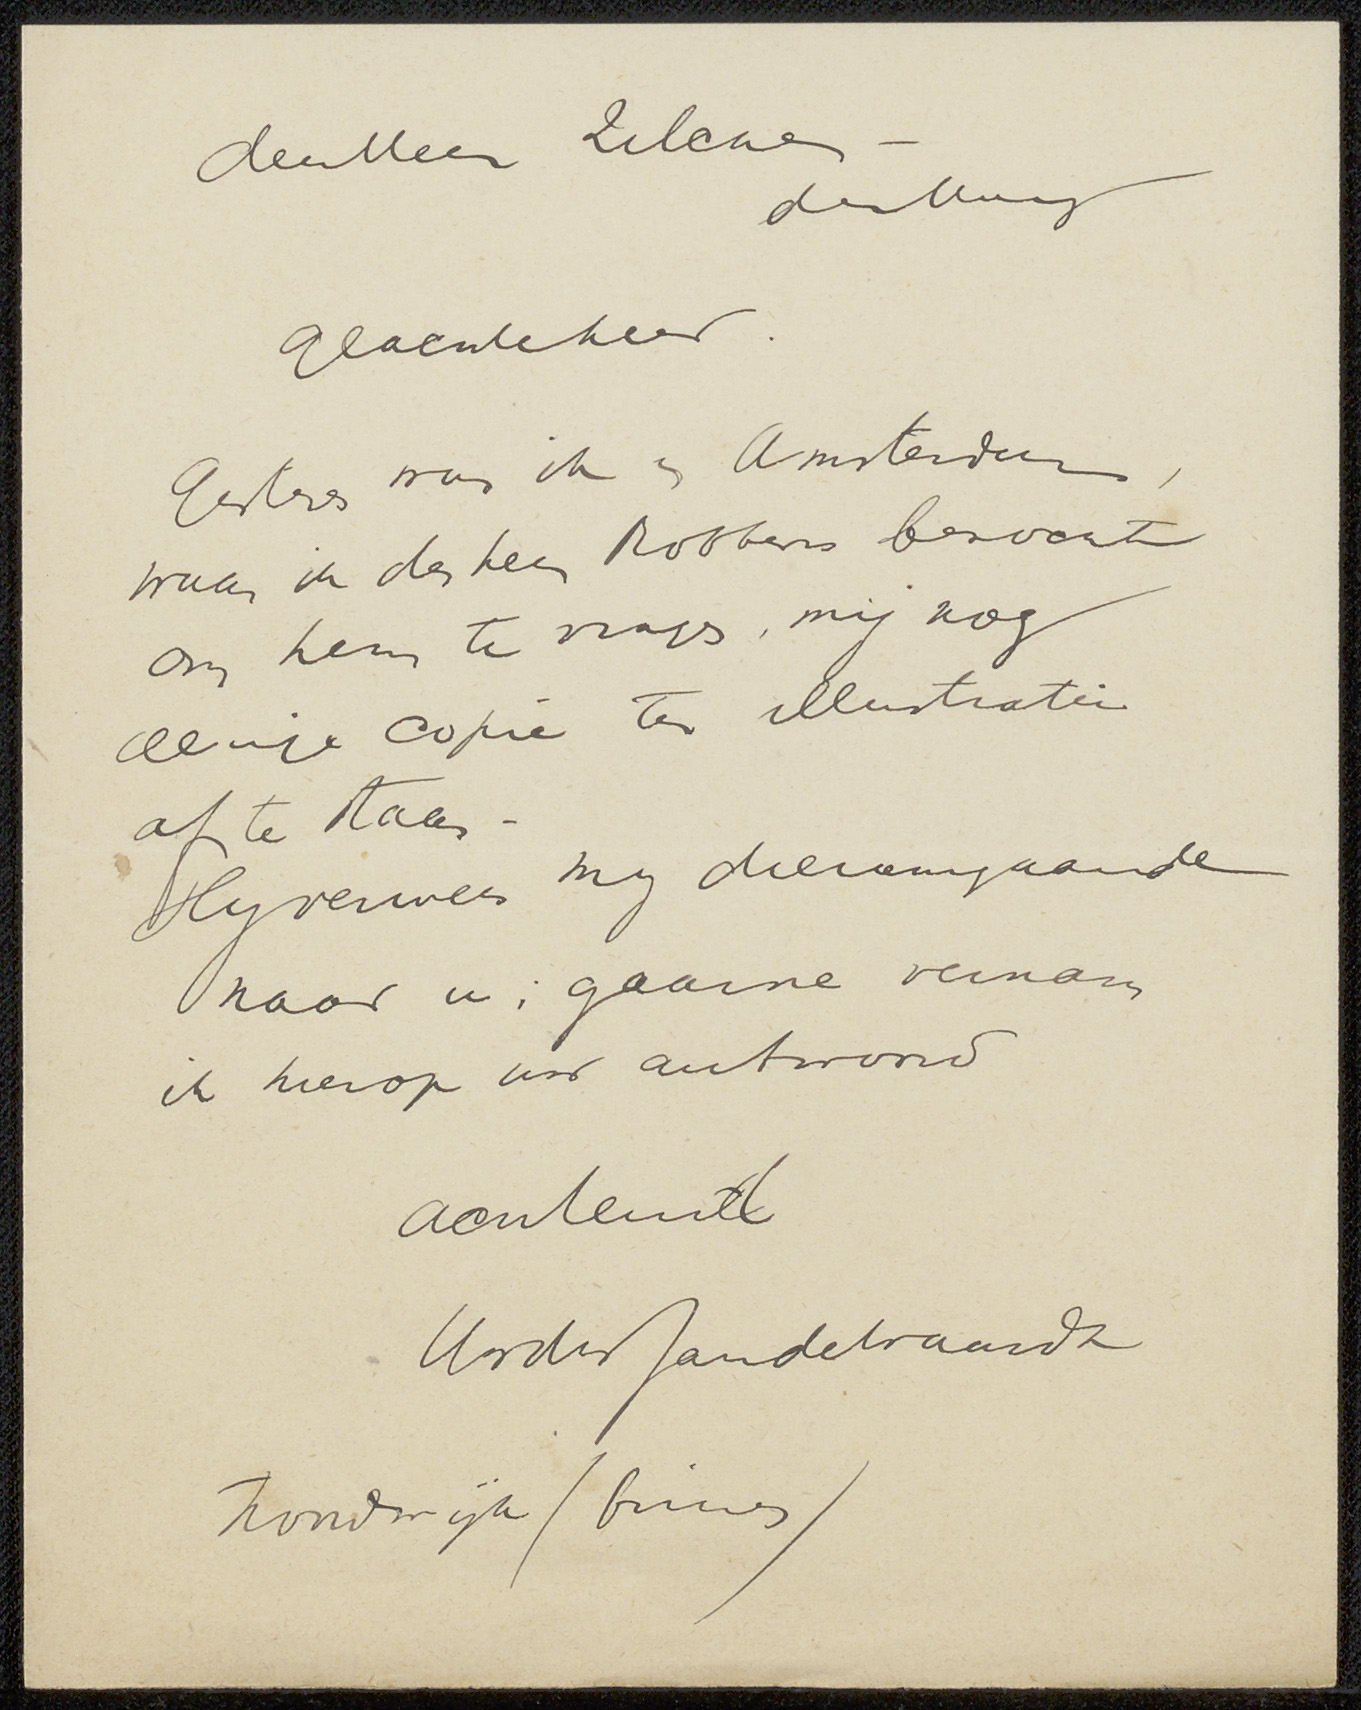 den Heer Zilcken –
den Haag
geachte heer.
Gisteren was ik in Amsterdam,
waar ik den heer Robbers bezocht
om hem te vragen, mij nog
eenige copie ter illustratie
af te staan –
Hy verwees my dienaangaande
naar u; gaarne vernam
ik hierop uw antwoord
achtend
Sandebraandt
Noordwijk (binnen)